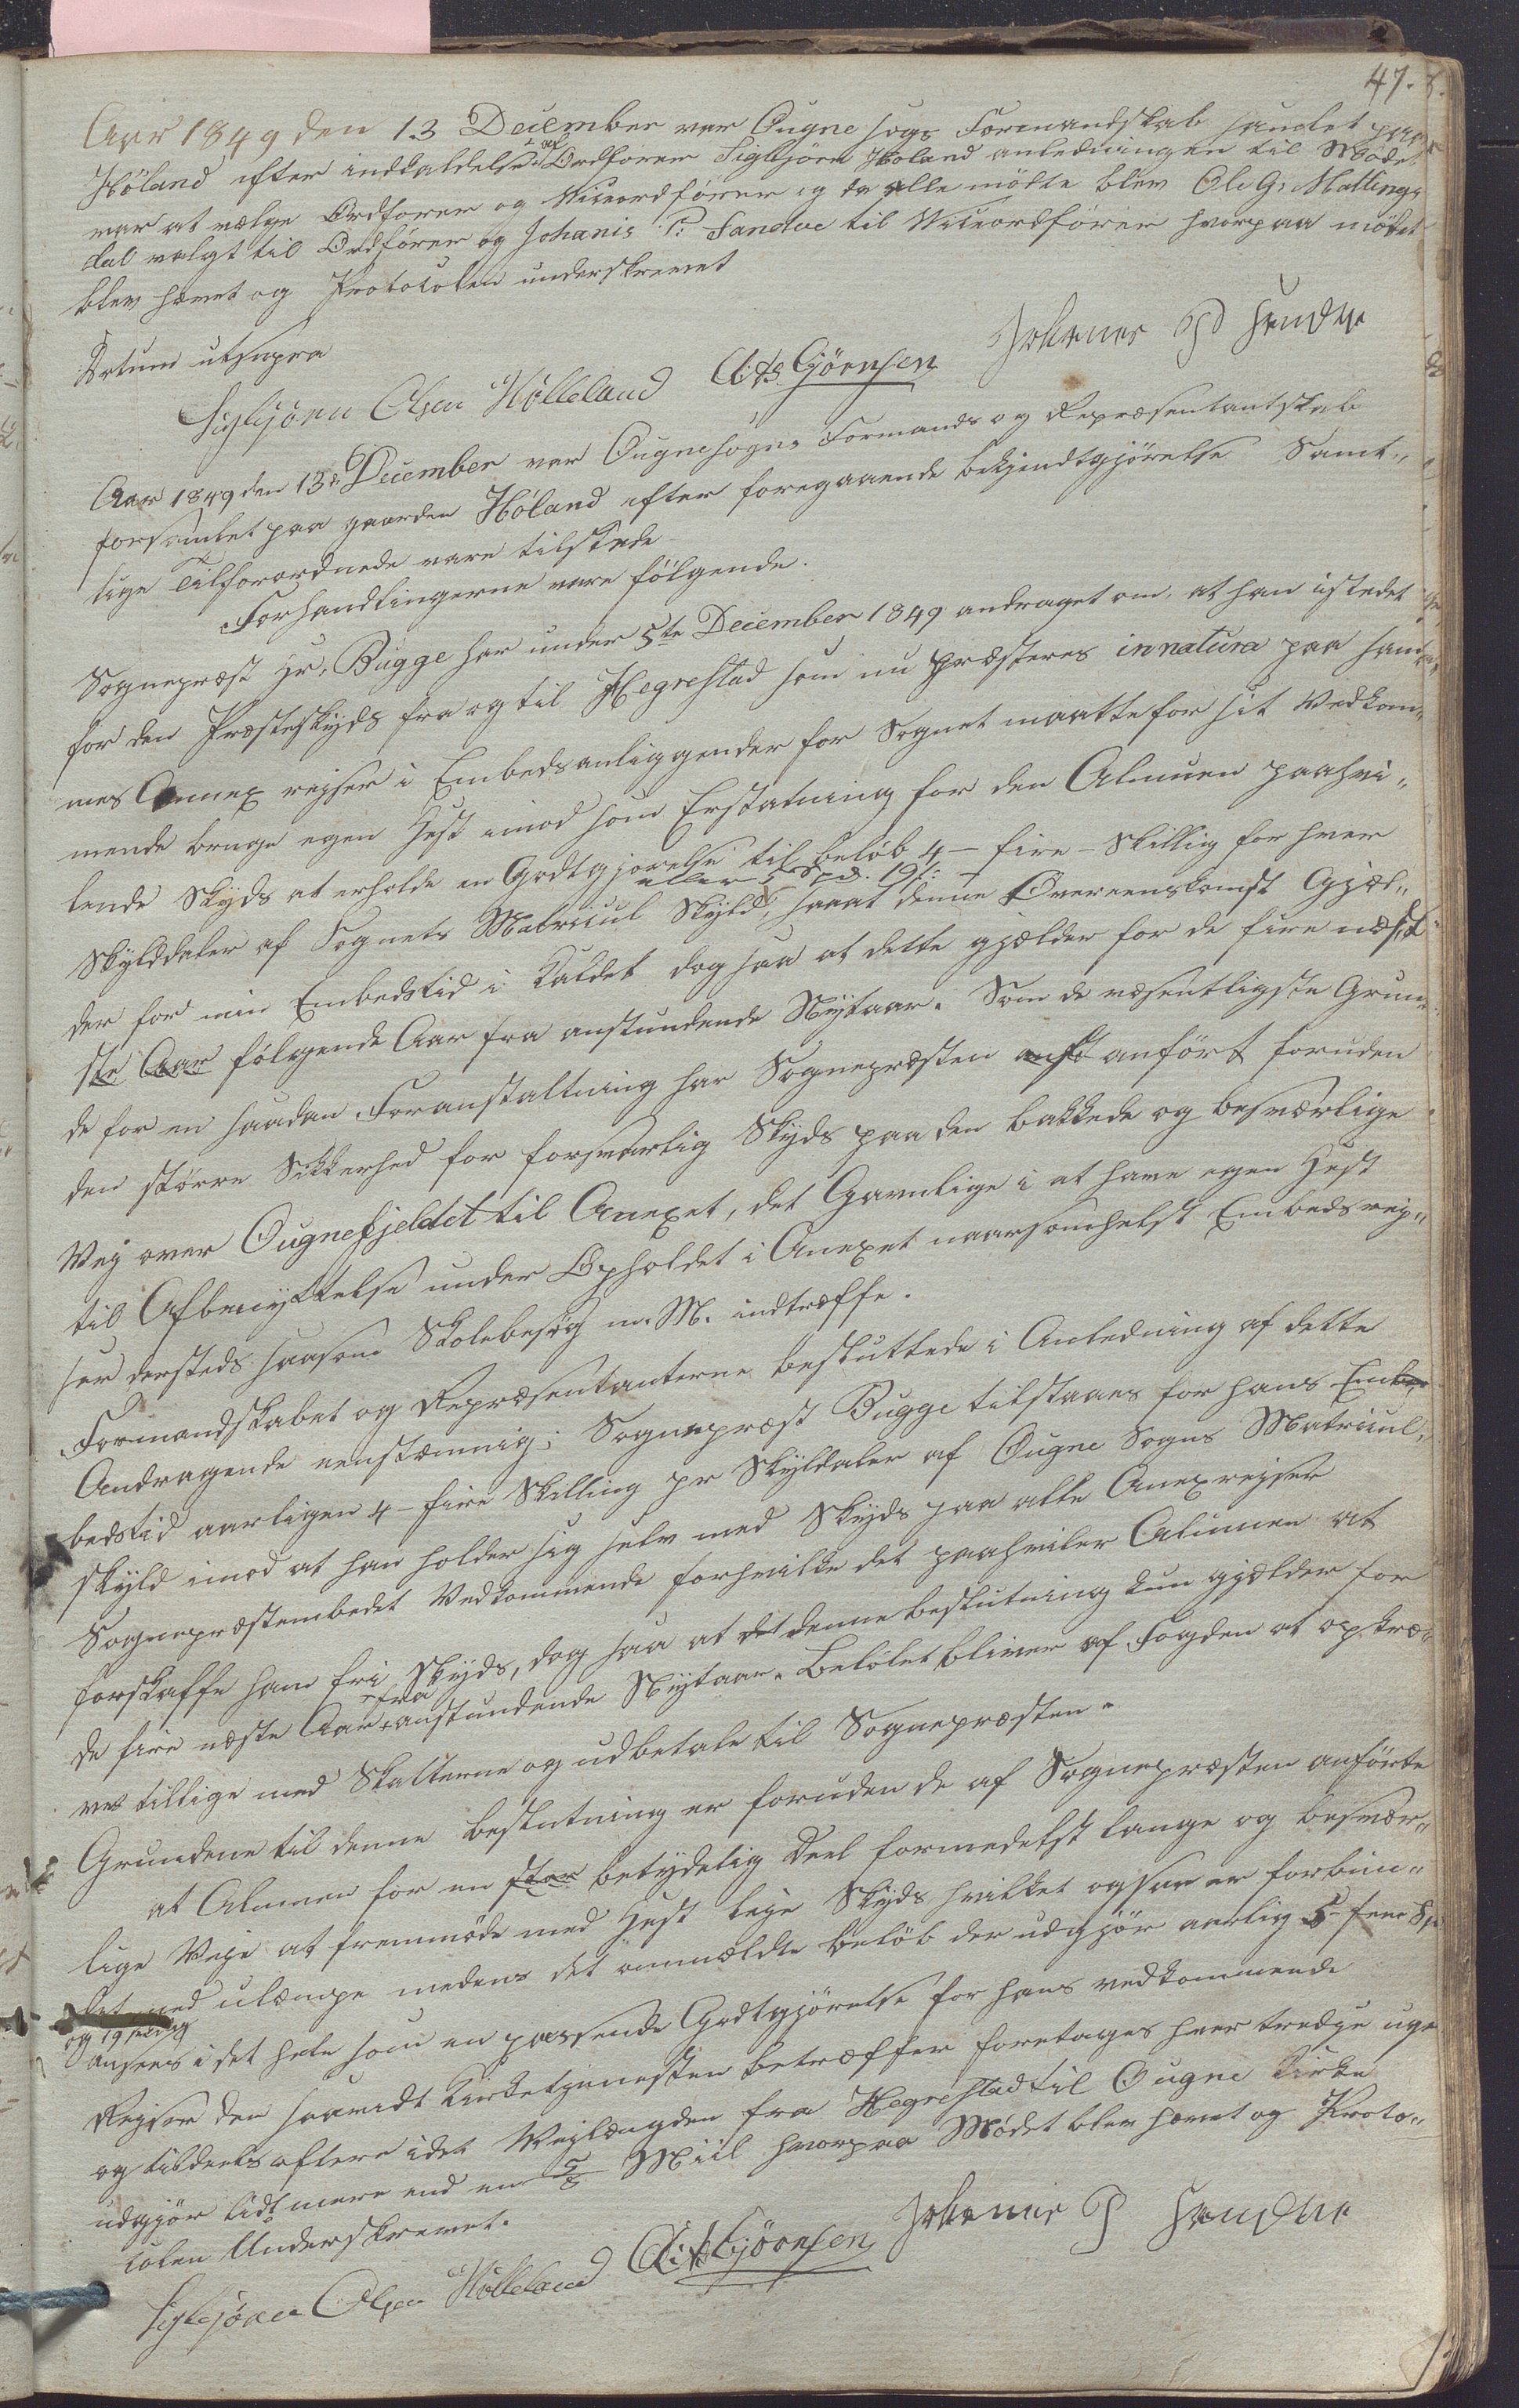 47.
Aar 1849 den 13 December var Ougne sogs Formandskab samlet paa
Höland efter indkaldelse af Ordförer Sigbjörn Höland anledningen til Mödet
var at vælge Ordförer og Viceordförer og da alle mödte blev Ole G: Mattings
dal valgt til Ordförer og Johanis P: Sandve til Viceordförer hvorpaa mödet
blev hævet og Protocolen underskrevet
Datum utsupra
Sigbjörn Olsen Hölleland Gjörnsen Johannes P Sandve
Aar 1849 den 13de December var Ougne sogns Formands og Repræsentantskab
forsamlet paa gaarden Höland efter foregaaende bekjendtgjörelse Samt„
lige Tilforordnede vare tilstede
Forhandlingerne vare fölgende.
Sognepræst Hr: Bugge har under 5te December 1849 andraget om, at han istedet
for den Præsteskyds fra og til Hegrestad som nu præsteres in natura paa sam„
mes Annex rejser i Embedsanliggender for Sognet maatte for sit Vedkom„
mende bruge egen Hest imod som Erstatning for den Almuen paahvi„
lende Skyds at erholde en Godtgjörelse til belöb 4 – fire – Skillig for hver
eller 5 Spd. 19 s:
Skylddaler af Sognets Matricul Skyld, saaat denne Overeenskomst Gjæl„
der for min Embedstid i Kaldet dog saa at dette gjælder for de fire næst
ste Aar fölgende Aar fra anstundende Nytaar. Som de væsentligste Grun„
de for en saadan Foranstaltning har Sognepræsten anfört foruden
den större Sikkerhed for forsvarlig Skyds paa den bakkede og besværlige
Vej over Ougnefjeldet til Anexet, det Gavnlige i at have egen Hest
til Afbenyttelse under Opholdet i Anexet naarsomhelst Embedsrej„
ser dersteds saasom Skolebesög m. M. indtræffe.
Formandskabet og Repræsentanterne besluttede i Anledning af dette
Andragende eenstæmmig; Sognepræst Bugge tilstaaes for hans Em„
bedstid aarligen 4 – fire Skilling pr Skyldaler af Ougne Sogns Matricul„
skyld imod at han holder sig selv med Skyds paa alle Anexrejser
Sognepræstembedet Vedkommende forhvilke det paahviler Almuen at
forskaffe ham fri Skyds, dog saa at det denne beslutning kun gjælder for
de fire næste Aar fra anstundende Nytaar. Belöbet bliver af Fogden at opkræ„
ves tillige med Skatterne og udbetale til Sognepræsten.
Grundene til denne beslutning er foruden de af Sognepræsten anförte
at Almuen for en stor betydelig Deel formedelst lange og besvær„
lige Veje at fremmöde med Hest leje Skyds hvilket ogsaa er forbun„
det med ulæmpe medens det anmældte belöb der udgjör aarlig 5– fem Sp
og 19 skilling
ansees i det hele som en passende Godtgjörelse for hans vedkommende
Rejser der saavidt Kirketjenesten betræffer foretages hver tredje uge
og tildeels oftere idet Vejlængden fra Hegrestad til Ougne Kirke
udgjör lidt mere end en 5/8 Miil hvorpaa Mödet blev hævet og Proto„
colen Underskrevet.
Sigbjörn Olsen Hölleland Gjörnsen Johannes P Sandve